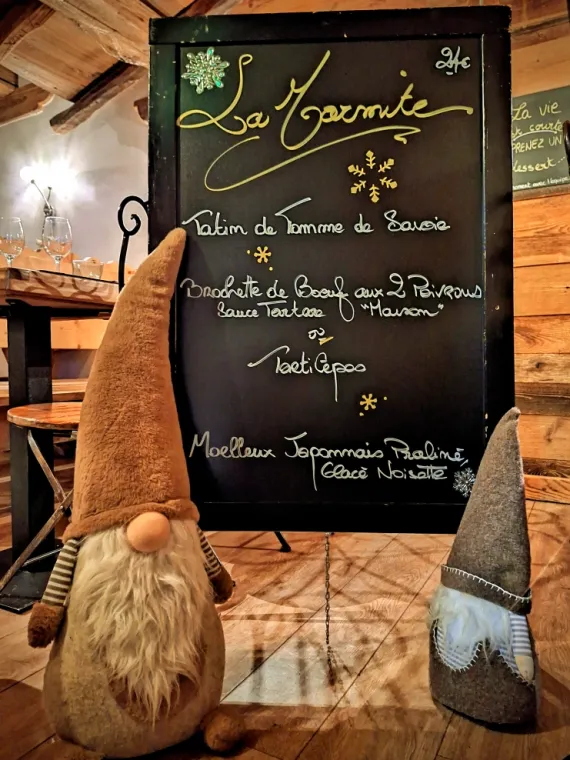 24€
La Marmite
Tatin de Tomme de Savoie
Brochette de Boeuf aux 2 Poivrons
Sauce Tartare "Maison"
ou
TartiCepes
Moelleux Japonnais Praliné,
Glace Noisette
La vie
courte
PRENEZ UN
dessert